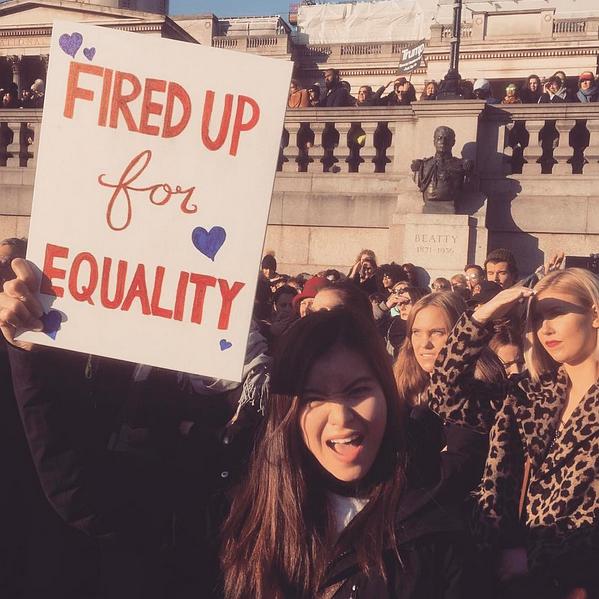 FIRED UP
for
EQUALITY
BEATTY
1871-1936